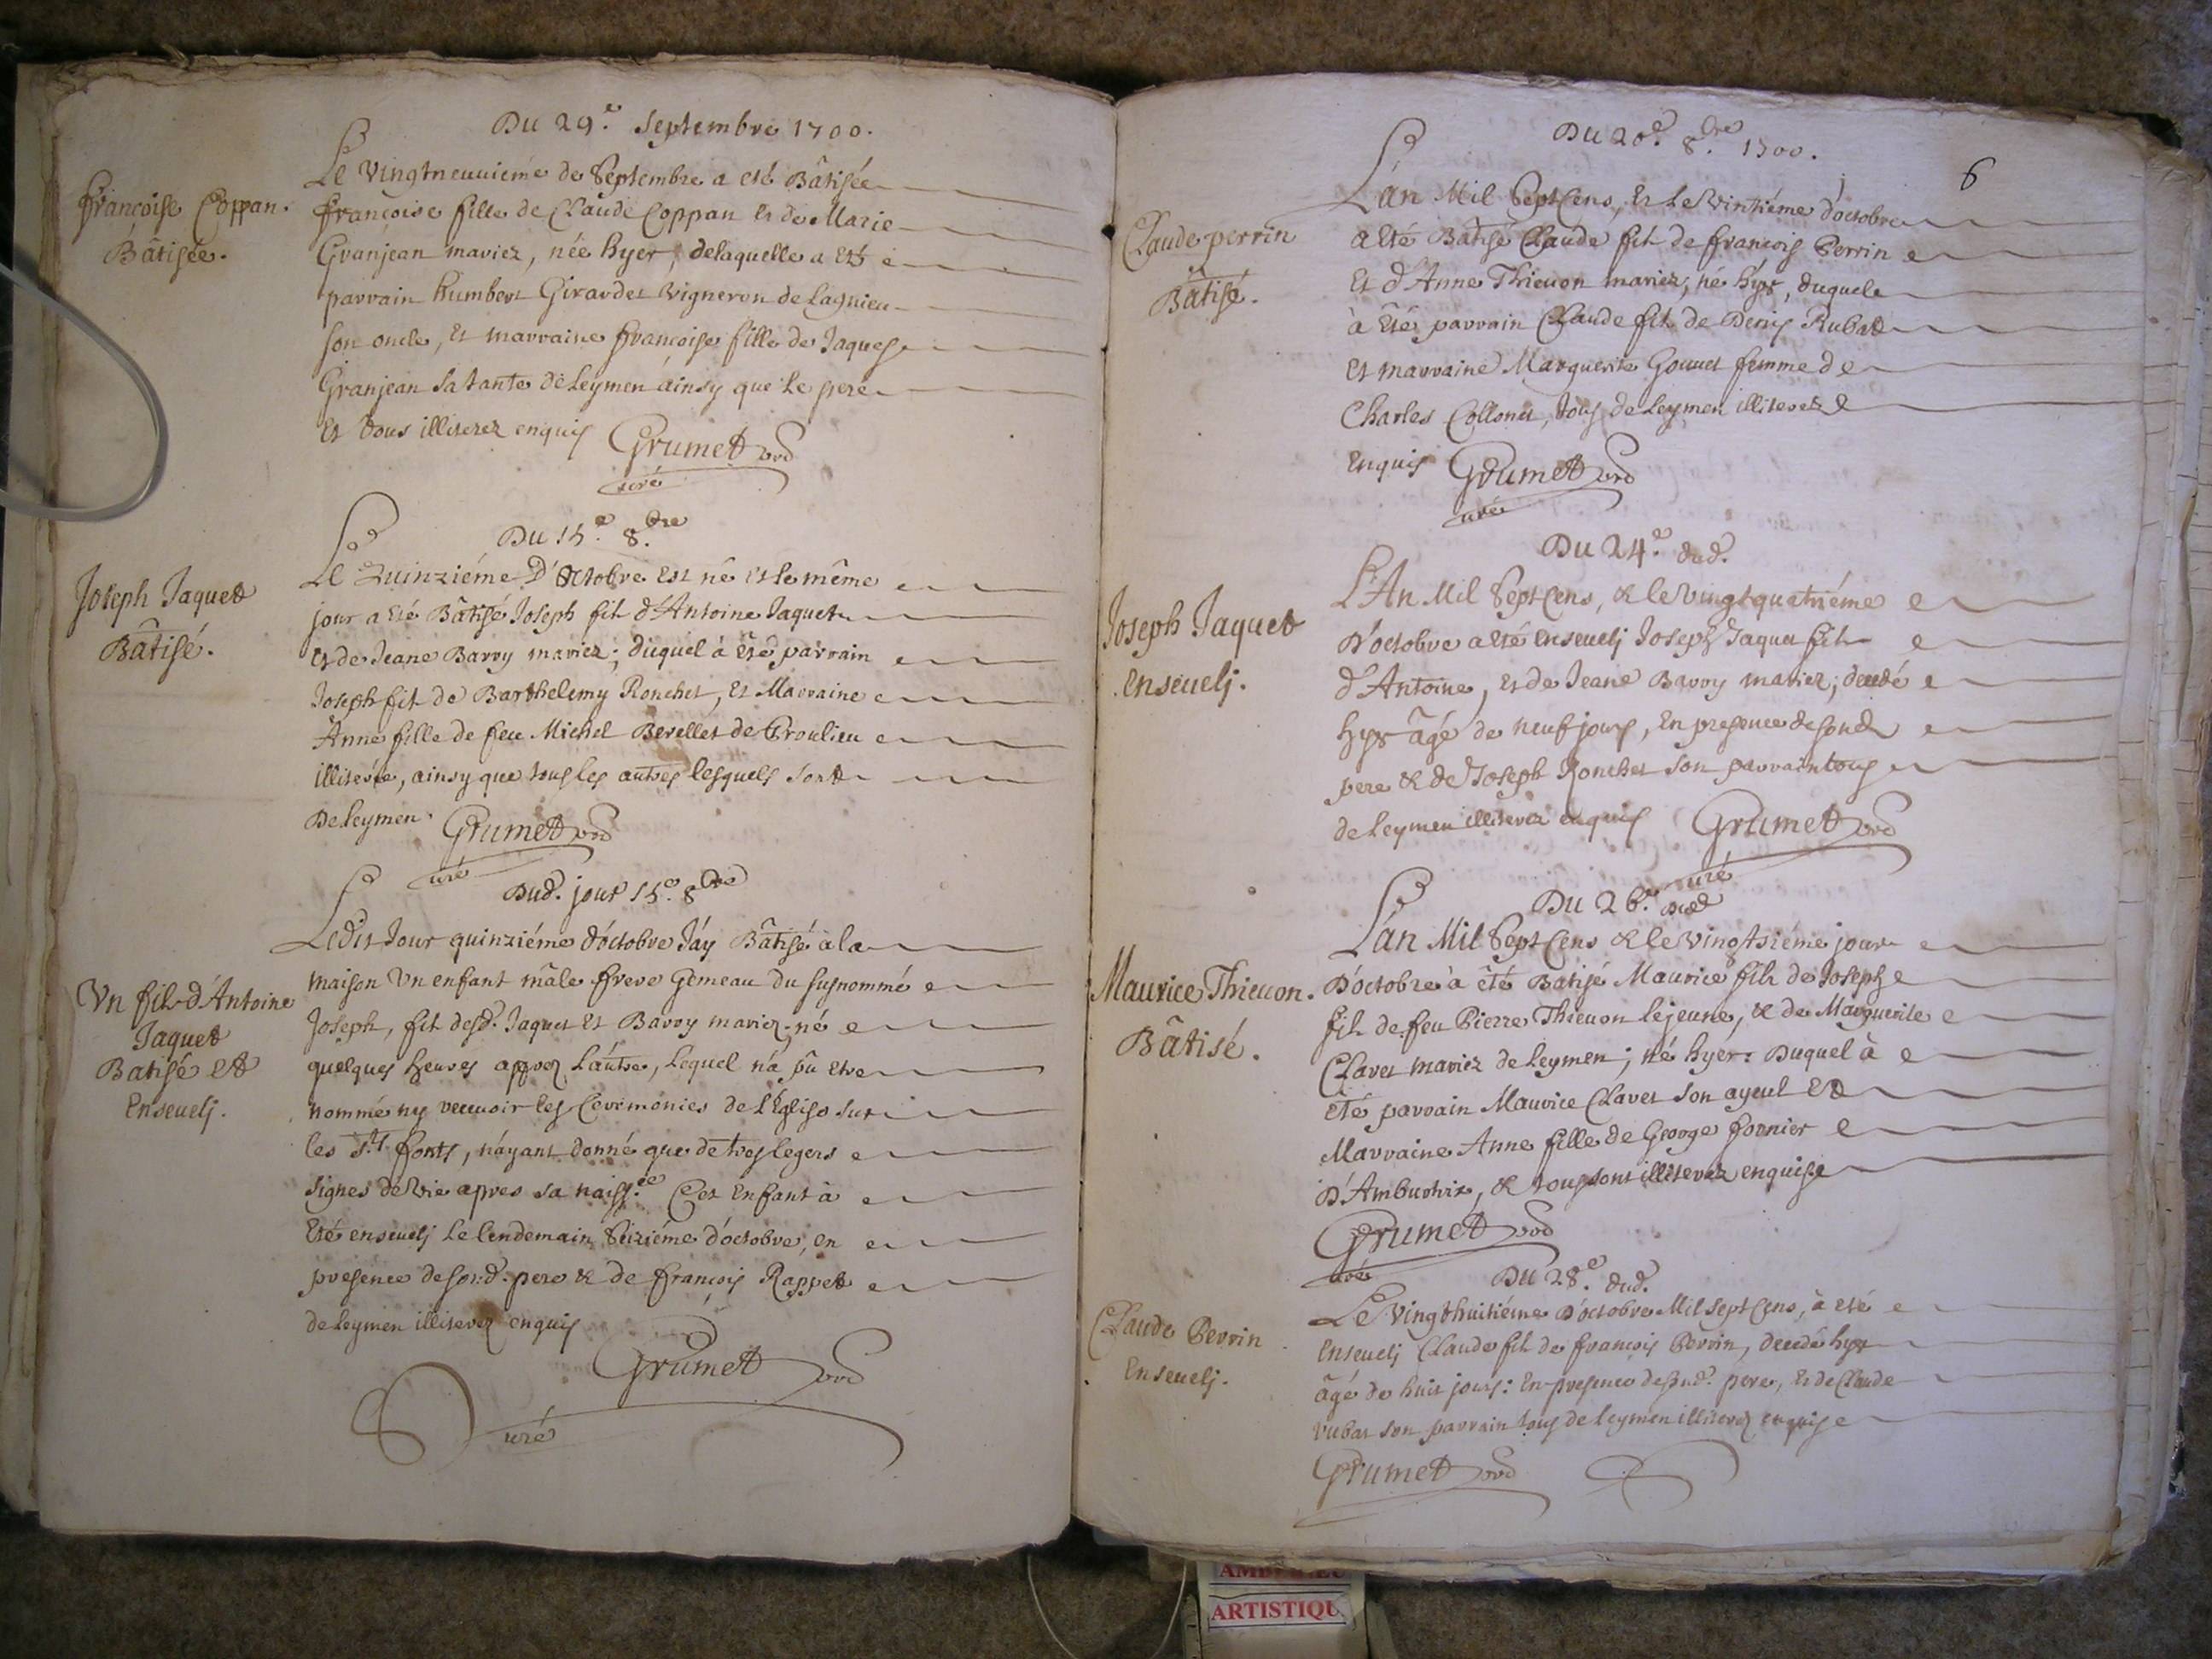 Du 29.e Septembre 1700.
Françoise Coppan.
Bâtisée.
Le vingtneuuiéme de Septembre a eté Bâtisée
françoise fille de Claude Coppan et de Marie
Granjean mariez, née hyer, delaquelle a eté
parrain humbert Girardet vigneron de Lagnieu
son oncle, et marraine françoise fille de Jaques
Granjean sa tante de Leymen ainsy que le pere
et tous illiterez enquis Grumet
curé
Du 15.e 8.bre
Joseph Jaquet
Bâtisé.
Le Quinziéme D'Octobre est né et le même
jour a eté Bâtisé Joseph fil d'Antoine Jaquet
et de Jeane Barry mariez; duquel à été parrain
Joseph fil de Barthelemy Ronchet, et Marraine
Anne fille de feu Michel Berellet de Proulieu
illiterée, ainsy que tous les autres lesquels sont
De Leymen. Grumet
curé
Dud. jour 15.e 8.bre
Vn fil d'Antoine
Jaquet
Batisé et
Enseuelj.
Ledit Jour quinziéme d'octobre J'ay Bâtisé à la
maison vn enfant mâle frere gemeau du susnommé
Joseph, fil desd. Jaquet et Barry mariez né
quelques heures apprez l'autre, Lequel n'a pû etre
nommé ny receuoir les Ceremonies de l'Eglise sur
les S.ts fonts, n'ayant donné que de tres legers
signes de vie apres sa naiss.ce Cet enfant à
eté enseuelj le lendemain seiziéme d'octobre, en
presence de sond. pere & de françois Rappet
de Leymen illiterez enquis
Grumet
curé
6
Du 20.e 8.bre 1700.
Claude perrin
Bâtisé.
L'an Mil Sept Cens, et le vintiéme d'octobre
a eté Bâtisé Claude fil de françois Perrin
et d'Anne Thieuon mariez, né hyer, duquel
à eté parrain Claude fil de Denis Rubat
et marraine Marguerite Gouuet femme de
Charles Collonet, tous de Leymen illiterez
enquis Grumet
curé
Du 24.e dud.
Joseph Jaquet
enseuelj.
L'An Mil Sept Cens, & le vingtquatriéme
D'octobre a eté enseuelj Joseph Jaquet fil
d'Antoine, et de Jeane Barry mariez; decedé
hyer âgé de neuf jours, En presence de sond.
pere & de Joseph Ronchet son parrain tous
de Leymen illiterez enquis Grumet
curé
Du 26.e dud.
Maurice Thieuon.
Bâtisé.
L'an Mil Sept Cens & le vingtsiéme jour
D'octobre à été Batisé Maurice fils de Joseph
fil de feu Pierre Thieuon lejeune, & de Marguerite
Clavet mariez de Leymen; né hyer: Duquel à
eté parrain Maurice Clavet son ayeul et
Marraine Anne fille de George fornier
D'Ambutrix, & tous sont illiterez enquis
Grumet
curé
Du 28.e dud.
Claude Perrin
Enseuelj.
Le vingthuitiéme D'octobre Mil Sept Cens, à eté
Enseuelj Claude fil de françois Perrin, decedé hyer
âgé de huit jours: En presence de sond. pere, et de Claude
rubat son parrain tous de Leymen illiterez enquis
Grumet
ARTISTIQU